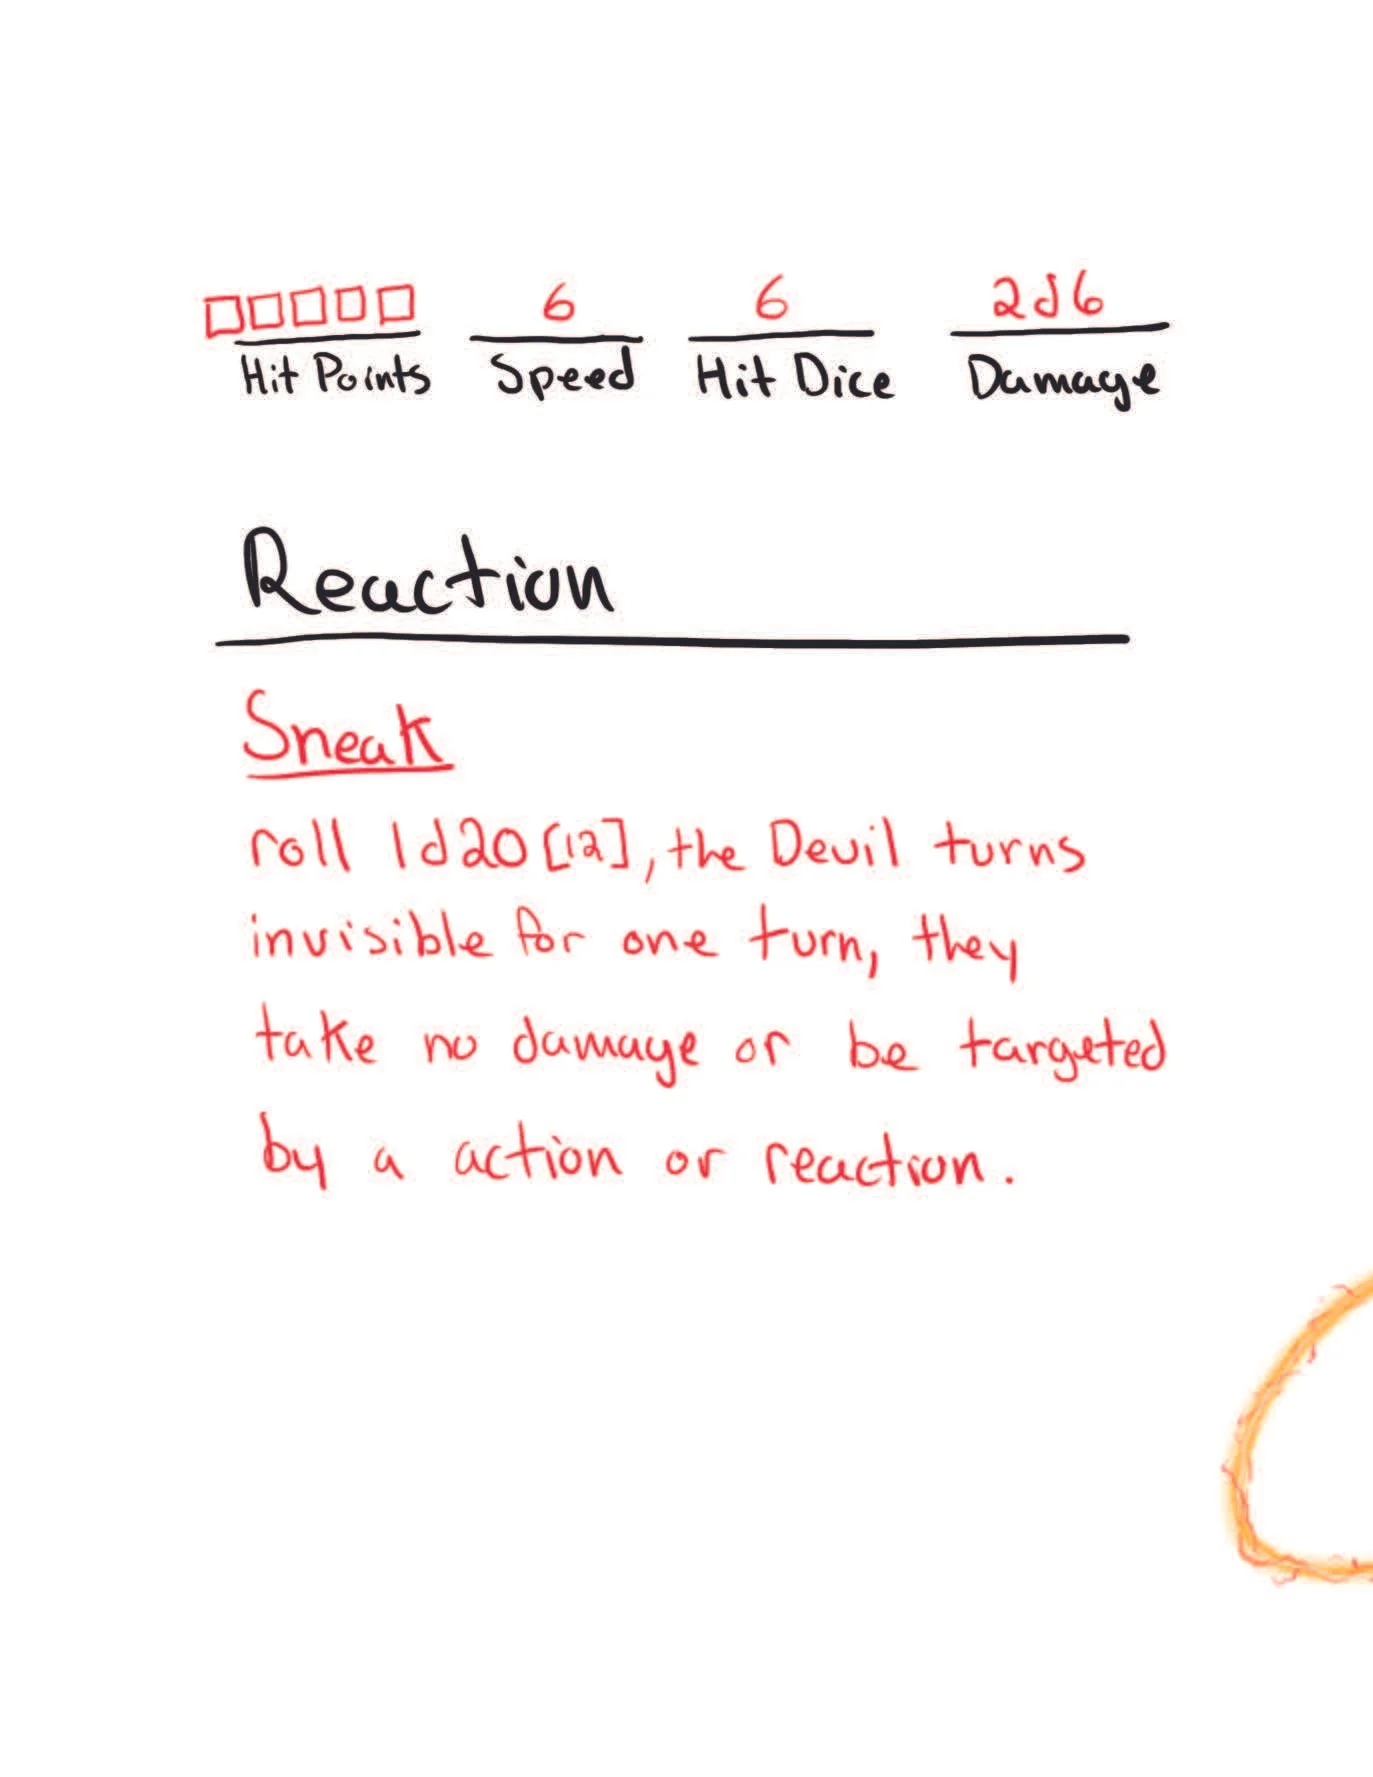 □□□□□ 6 6 2d6
Hit Points Speed Hit Dice Damage
Reaction
Sneak
roll 1d20 [12], the Devil turns
invisible for one turn, they
take no damage or be targeted
by a action or reaction.